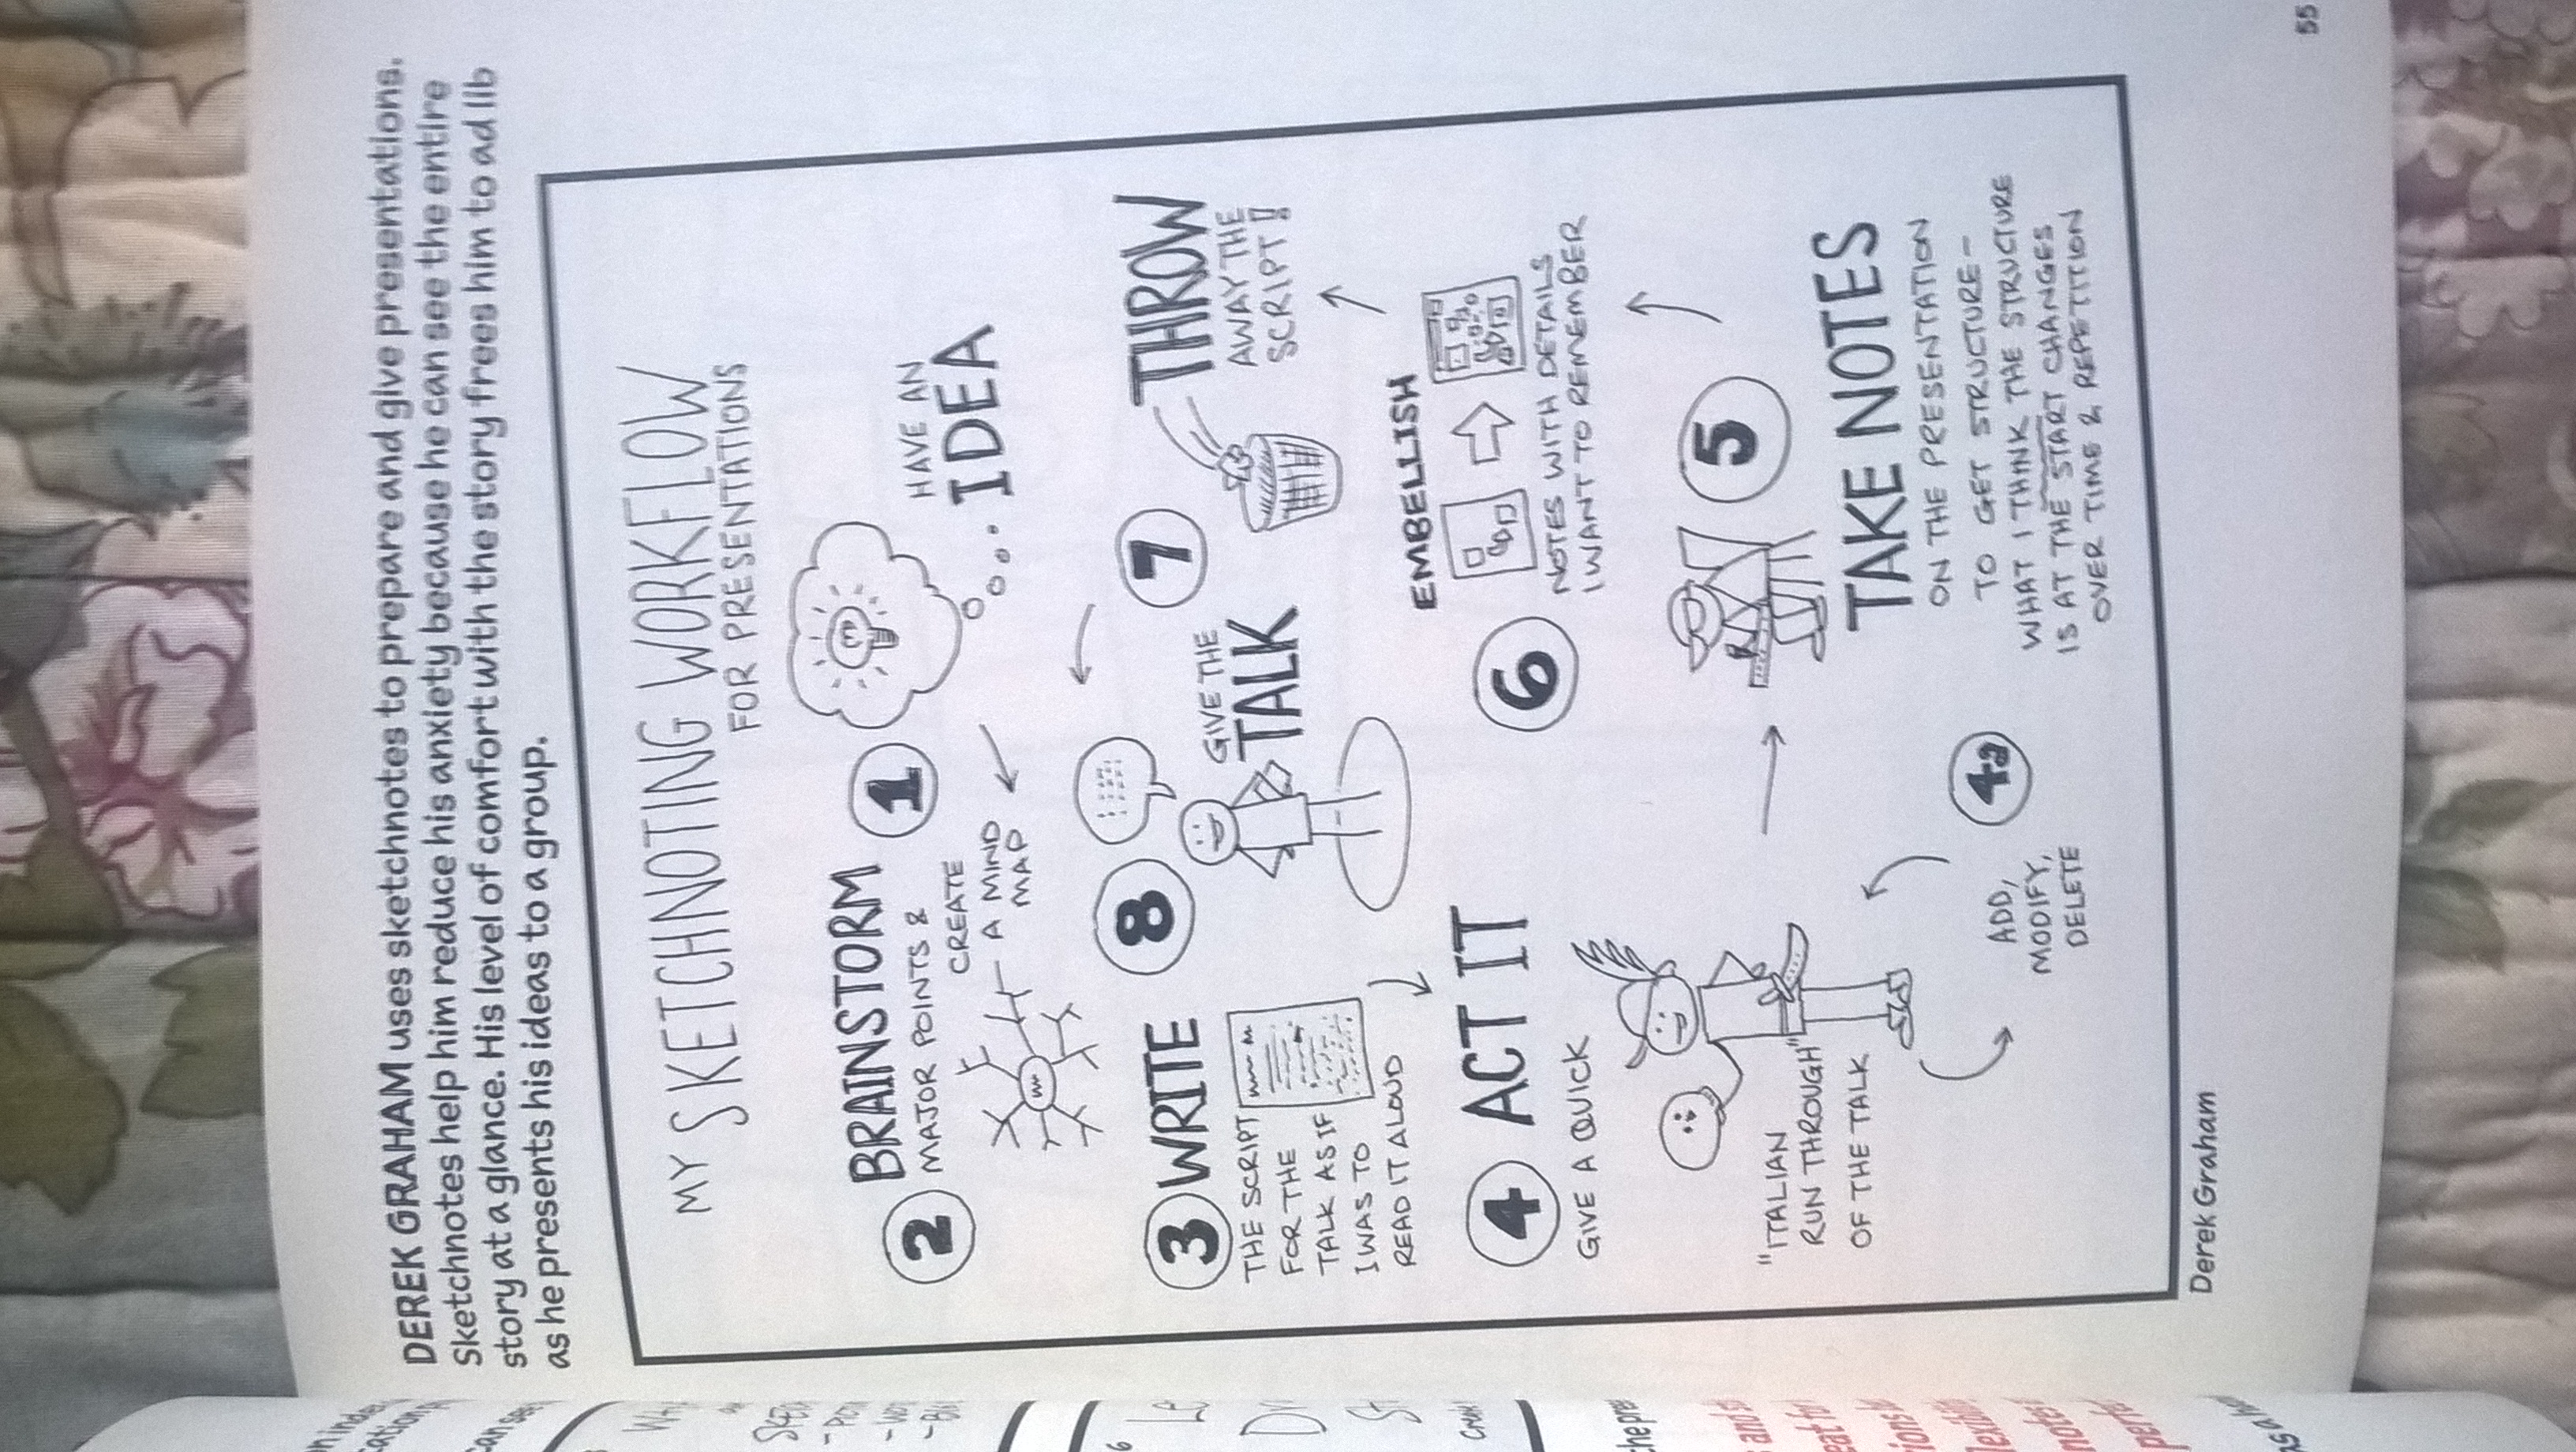 DEREK GRAHAM uses sketchnotes to prepare and give presentations.
Sketchnotes help him reduce his anxiety because he can see the entire
story at a glance. His level of comfort with the story frees him to ad lib
as he presents his ideas to a group.
MY SKETCHNOTING WORKFLOW
FOR PRESENTATIONS
1
HAVE AN
IDEA
2 BRAINSTORM
MAJOR POINTS &
CREATE
A MIND
MAP
3 WRITE
THE SCRIPT
FOR THE
TALK AS IF
I WAS TO
READ IT ALOUD
4 ACT IT
GIVE A QUICK
"ITALIAN
RUN THROUGH"
OF THE TALK
4a
ADD,
MODIFY,
DELETE
5
TAKE NOTES
ON THE PRESENTATION
TO GET STRUCTURE-
WHAT I THINK THE STRUCTURE
IS AT THE START CHANGES
OVER TIME & REPETITION
6
EMBELLISH
NOTES WITH DETAILS
I WANT TO REMEMBER
7
THROW
AWAY THE
SCRIPT!
8
GIVE THE
TALK
Derek Graham
55